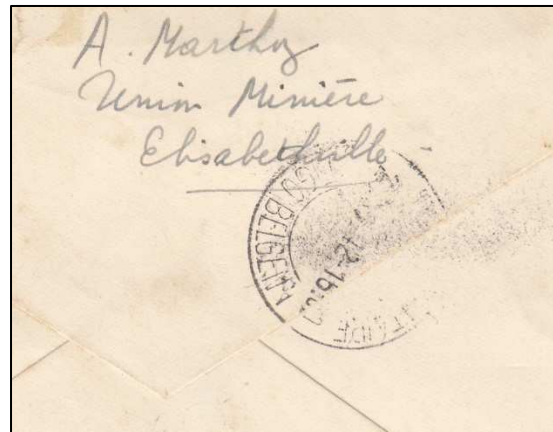 A. Marthoz
Union Minière
Elisabethville
CONGO BELGE